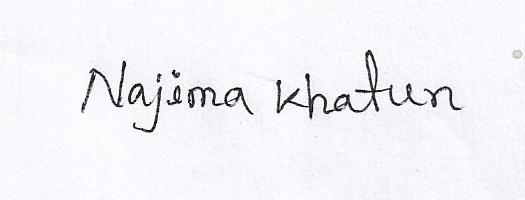 Najima Khatun